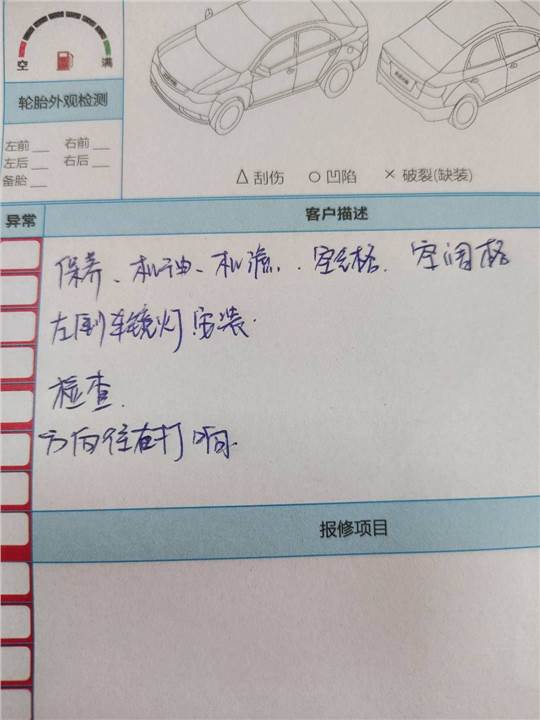 空 满
轮胎外观检测
左前 右前
左后 右后
备胎
△ 刮伤 ○ 凹陷 × 破裂(缺装)
异常 客户描述
保养、机油、机滤、空气格、空调格
左倒车镜灯安装.
检查.
方向往右打响.
报修项目